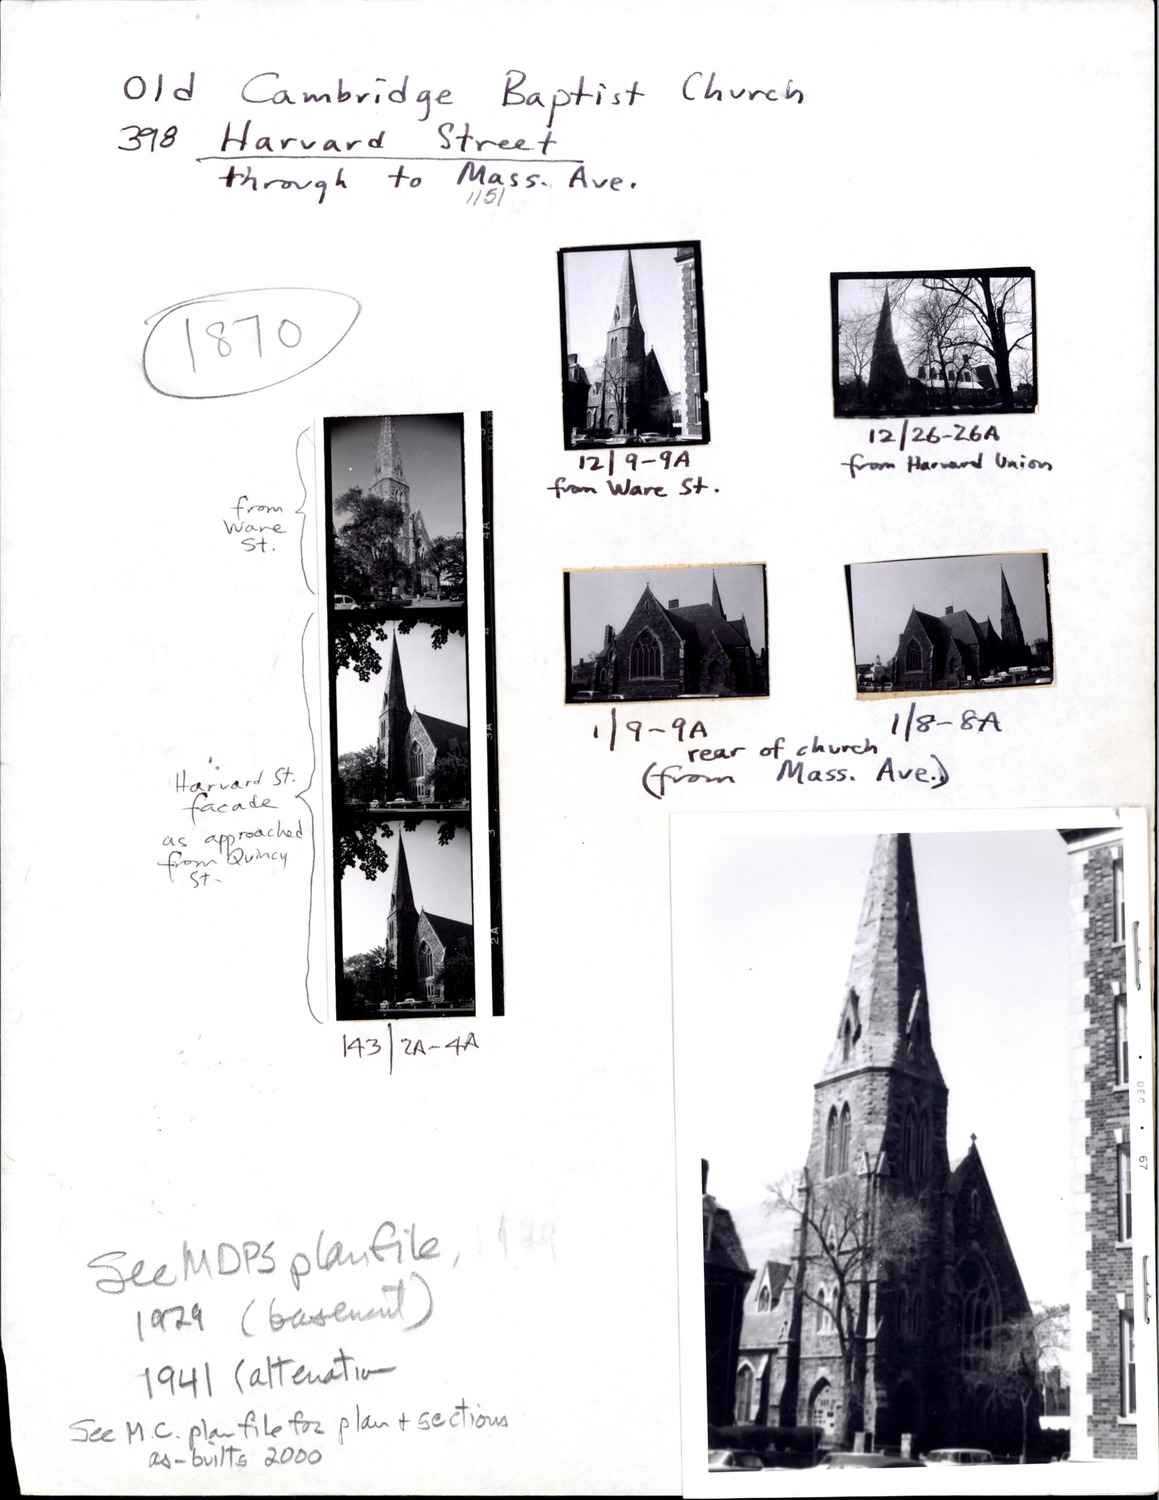 Old Cambridge Baptist Church
398 Harvard Street
through to Mass. Ave.
1151
1870
12/9-9A
from Ware St.
12/26-26A
from Harvard Union
from
Ware
St.
1/9-9A
1/8-8A
rear of church
(from Mass. Ave.)
Harvard St.
facade
as approached
from Quincy
St.
4A
4
3A
3
2A
143/2A-4A
• DEC • 67
See MDPS plan file,
1929 (basement)
1941 (alteration
See M.C. plan file for plan + sections
as-builts 2000